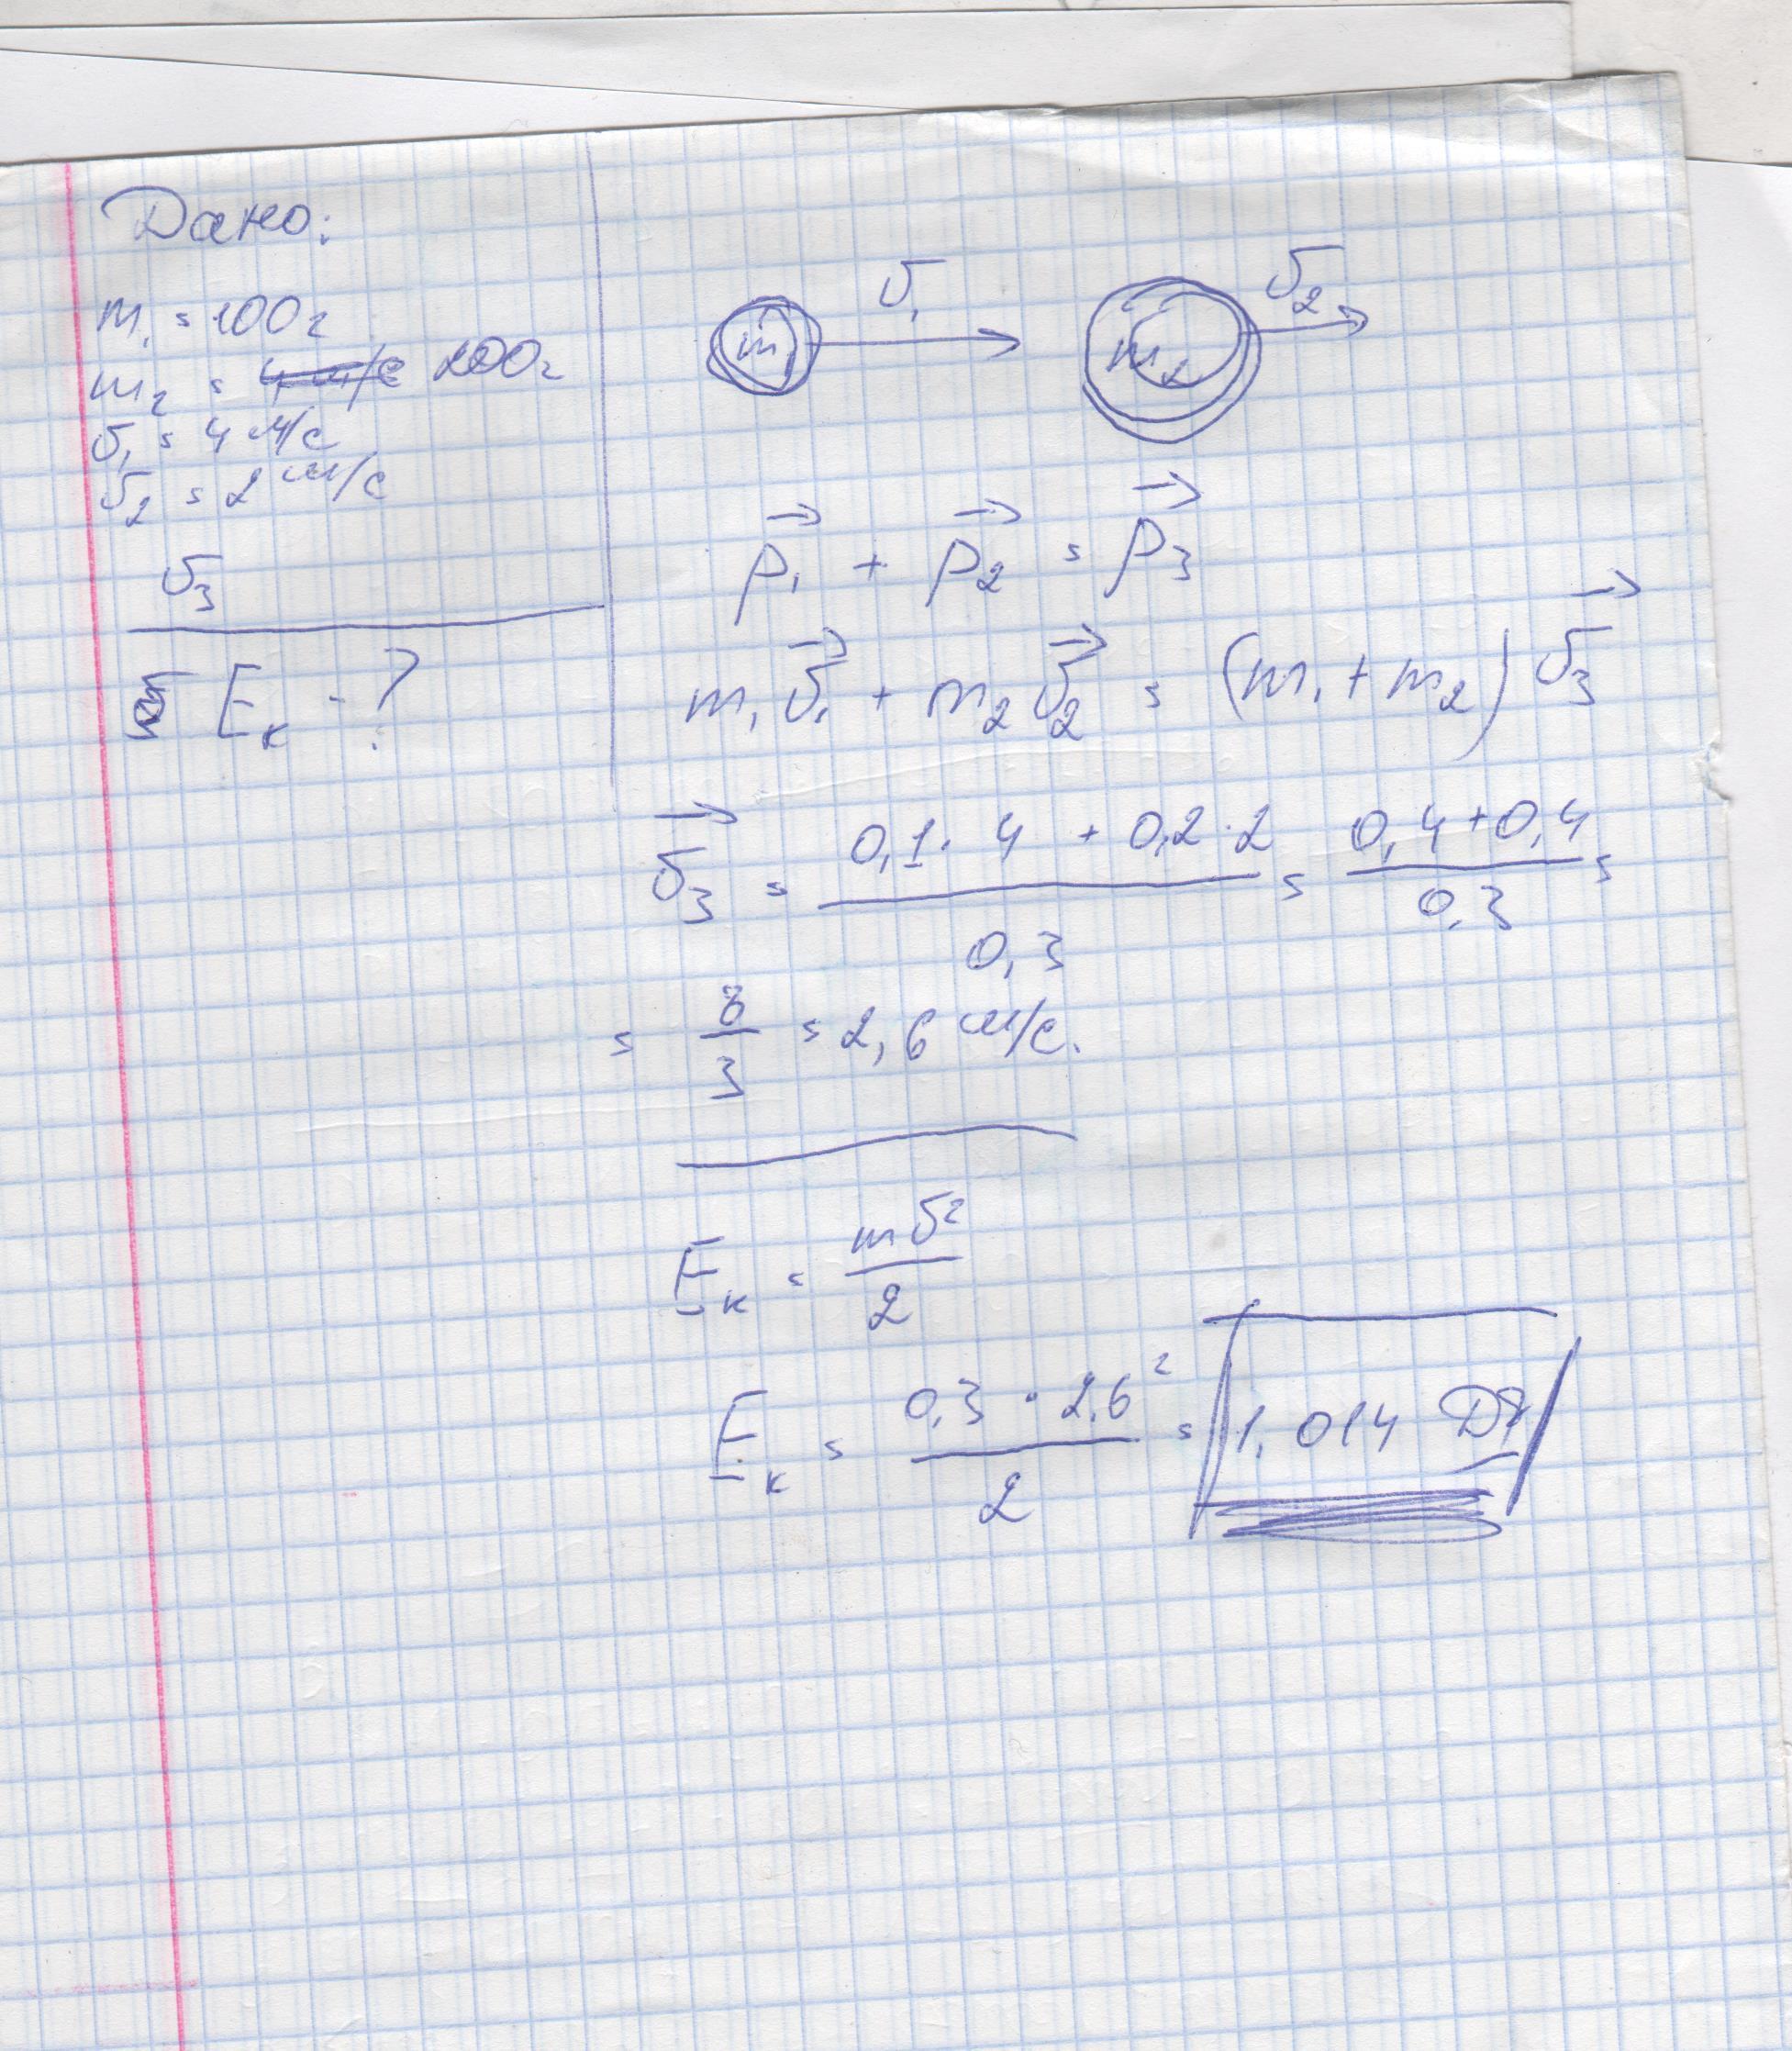 Дано:
m₁ = 100г
m₂ = 200г
υ₁ = 4 м/с
υ₂ = 2 м/с
υ₃
Eк - ?
m₁ υ₁ m₂ υ₂
p⃗₁ + p⃗₂ = p⃗₃
m₁υ⃗₁ + m₂υ⃗₂ = (m₁ + m₂) υ⃗₃
υ⃗₃ = (0,1 · 4 + 0,2 · 2) / 0,3 = (0,4 + 0,4) / 0,3 =
= 8/3 = 2,6 м/с.
Eк = mυ²/2
Eк = (0,3 · 2,6²) / 2 = 1,014 Дж